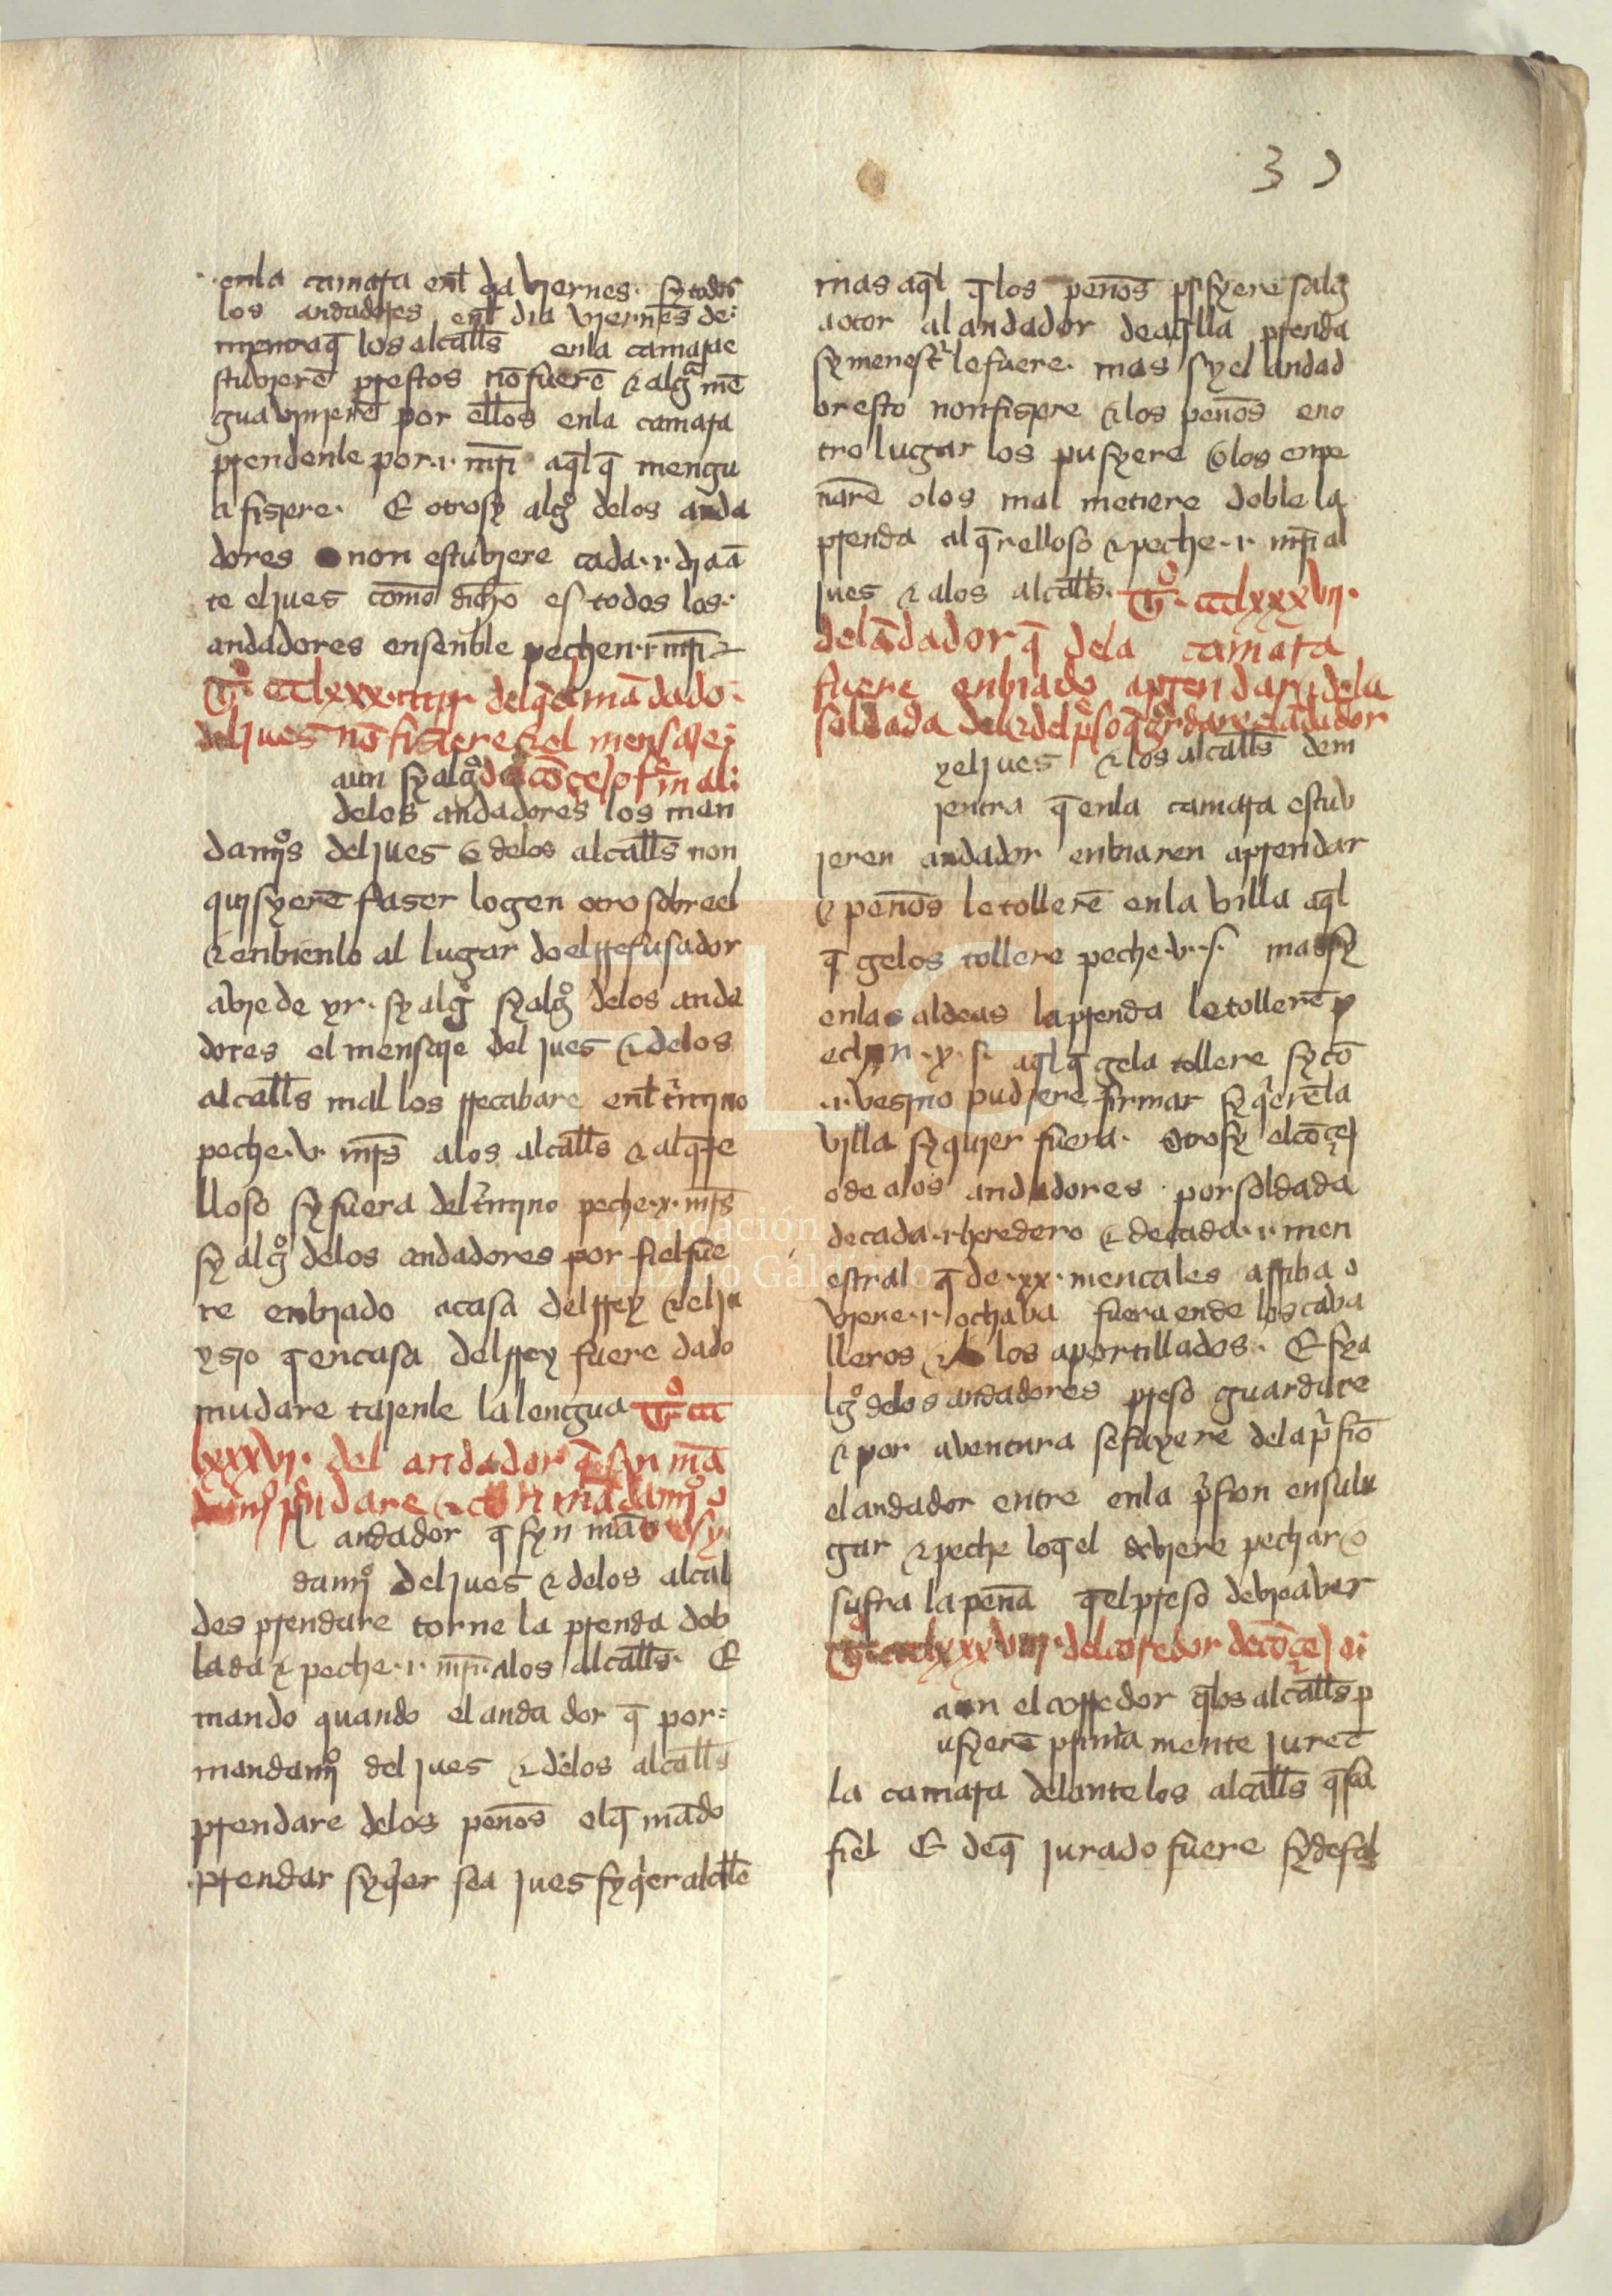 3 )
enla camara enl dia viernes. sy todos
los andadores enl dia viernes de
mientra q̄ los alcalls̄ enla camara e
stuvierē prestos nō fuerē ⁊ algᵃ mē
gua vinierē por ellos enla camara
prendenle por .i. mr̄i aq̄l q̄ mengu
a fisyere. E otrosy algᵒ delos anda
dores non estubiere cada .i. dia ā
te el jues comō dichō es todos los
andadores ensenble pechen .i. mr̄i ⁊
Tᵒ. cclxxx del q̄ el mādado
del jues nō fisiere ⁊ el mensaje
aun sy algᵒ de cōçejo
delos andadores los man
damjᵒs del jues o delos alcalls̄ non
quisyerē faser logen otro sobreel
⁊ enbienlo al lugar do el rrefusador
abie de yr. sy algᵒ sy algᵒ delos anda
dores el mensaje del jues ⁊ delos
alcalls̄ mal los rrecabare enl tr̄mjno
peche .v. mr̄s alos alcalls̄ ⁊ al q̄re
lloso sy fuera del tr̄mjno peche .x. mr̄s
sy algᵒ delos andadores por fiel fue
re enbiado acasa del rrey ⁊ el ju
ysio q̄ en casa del rrey fuere dado
mudare tajenle la lengua Tᵒ. cc
lxxxvi. del andador q̄ syn mā
prendare ⁊ con mādamjᵒ
l andador q̄ syn mā
damjᵒ del jues ⁊ delos alcal
des prendare torne la prenda dob
lada ⁊ peche .i. mr̄i. alos alcalls̄. E
mando quando el anda dor q̄ por
mandamjᵒ del jues ⁊ delos alcalls̄
prendare delos penōs el q̄ mādo
prendar syq̄er sea jues syq̄er alcalle
mas aq̄l q̄ los penōs prisyere salgᵃ
actor al andador de aq̄lla prenda
sy menestr̄ le fuere. mas sy el andad
or esto non fisyere ⁊ los penōs en o
tro lugar los pusyere o los enpe
narē o los mal metiere doble la
prenda al q̄relloso ⁊ peche .i. mr̄i al
jues ⁊ alos alcalls̄. Tᵒ. cclxxxvij.
del ādador q̄ dela camara
fuere enbiado a prendar ⁊ dela
soldada del ⁊ del pr̄so q̄ guardare el ādador
y el jues ⁊ los alcalls̄ dem
ientra q̄ enla camara estub
ieren andador enbiaren aprendar
⁊ penōs le tollerē en la villa aq̄l
q̄ gelos tollere peche .v. s. mas sy
enlas aldeas la prenda le tollerē p
echen .x. s. aq̄l q̄ gela tollere sy cō
.i. vesino pudiere firmar syq̄er ēla
villa syquier fuera. Otrosy el cōçej
o de alos andadores por soldada
de cada .i. heredero ⁊ de cada .i. men
estral q̄ de .xx. mencales arriba o
viere .i. ochaba fuera ende los caba
lleros ⁊ los aportillados. E sy a
lgᵒ delos andadores preso guardare
⁊ por aventura se fuyere dela pr̄siō
el andador entre enla pr̄sion en su lu
gar ⁊ peche lo q̄ el deviere pechar o
sufra la penā q̄ el preso debie aber
Tᵒ. cclxxxviij. del coredor de cōçejo
aun el corredor q̄ los alcalls̄ p
usyerē primera mente jure ē
la camara delante los alcalls̄ q̄ sea
fiel E deq̄ jurado fuere sy desel